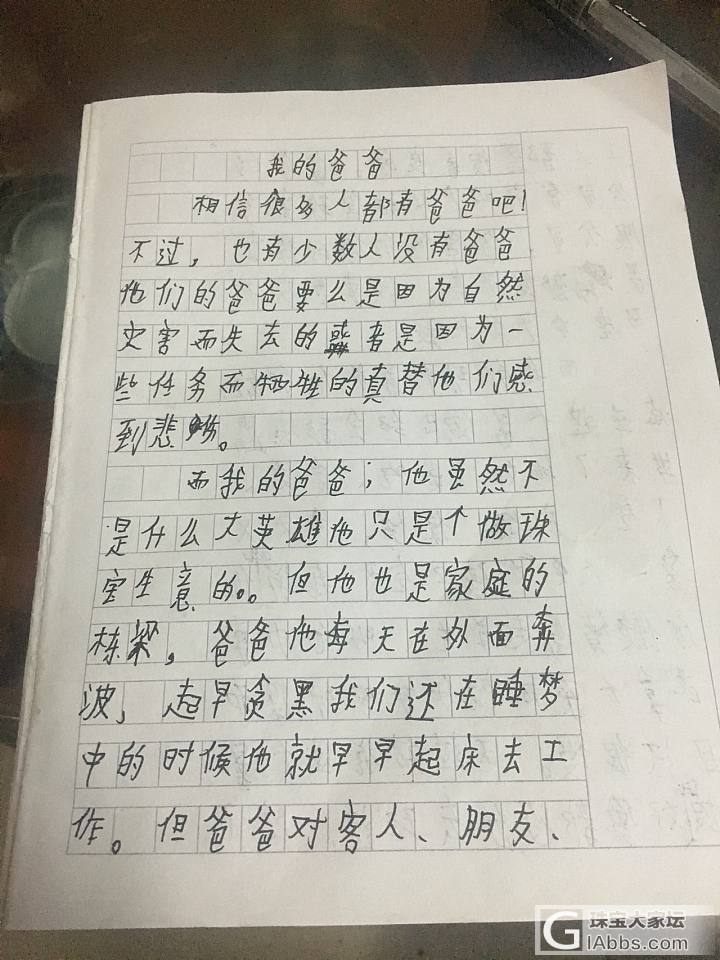 我的爸爸
相信很多人都有爸爸吧！
不过，也有少数人没有爸爸
他们的爸爸要么是因为自然
灾害而失去的或者是因为一
些任务而牺牲的真替他们感
到悲伤。
而我的爸爸；他虽然不
是什么大英雄他只是个做珠
宝生意的。但他也是家庭的
栋梁，爸爸他每天在外面奔
波，起早贪黑我们还在睡梦
中的时候他就早早起床去工
作。但爸爸对客人、朋友、
珠宝大家坛
GIAbbs.com